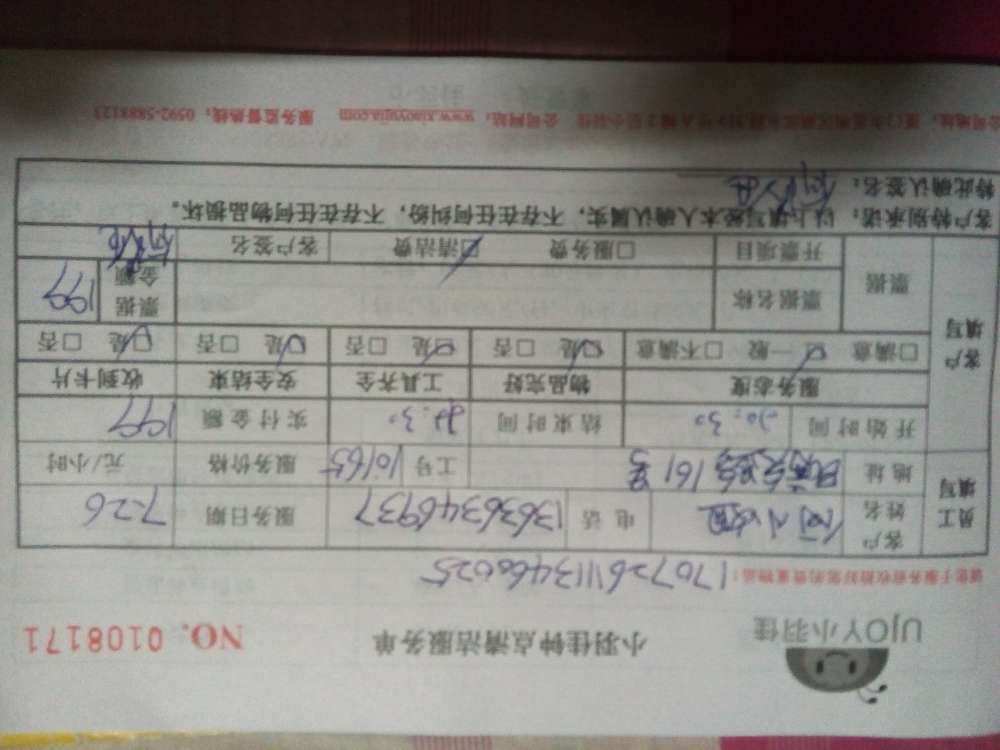 UJOY小羽佳 小羽佳钟点清洁服务单 NO. 0108171
请您于服务前收拾好您的贵重物品!
客户姓名 电话 13636346937 服务日期 7-26
地址 161号 工号 10165 服务价格 元/小时
开始时间 20:30 结束时间 实付金额 199
员工填写
服务态度 物品完好 工具齐全 安全结束 收到卡片
□满意 □一般 □不满意 □是 □否 □是 □否 □是 □否 □是 □否
票据 票据名称 票据金额 199
开票项目 □服务费 □清洁费 客户签名
客户填写
客户特别承诺:以上填写经本人确认属实,不存在任何纠纷,不存在任何物品损坏。
特此确认签名:
公司网址:www.xiaoyujia.com 服务监督热线:0592-5888123